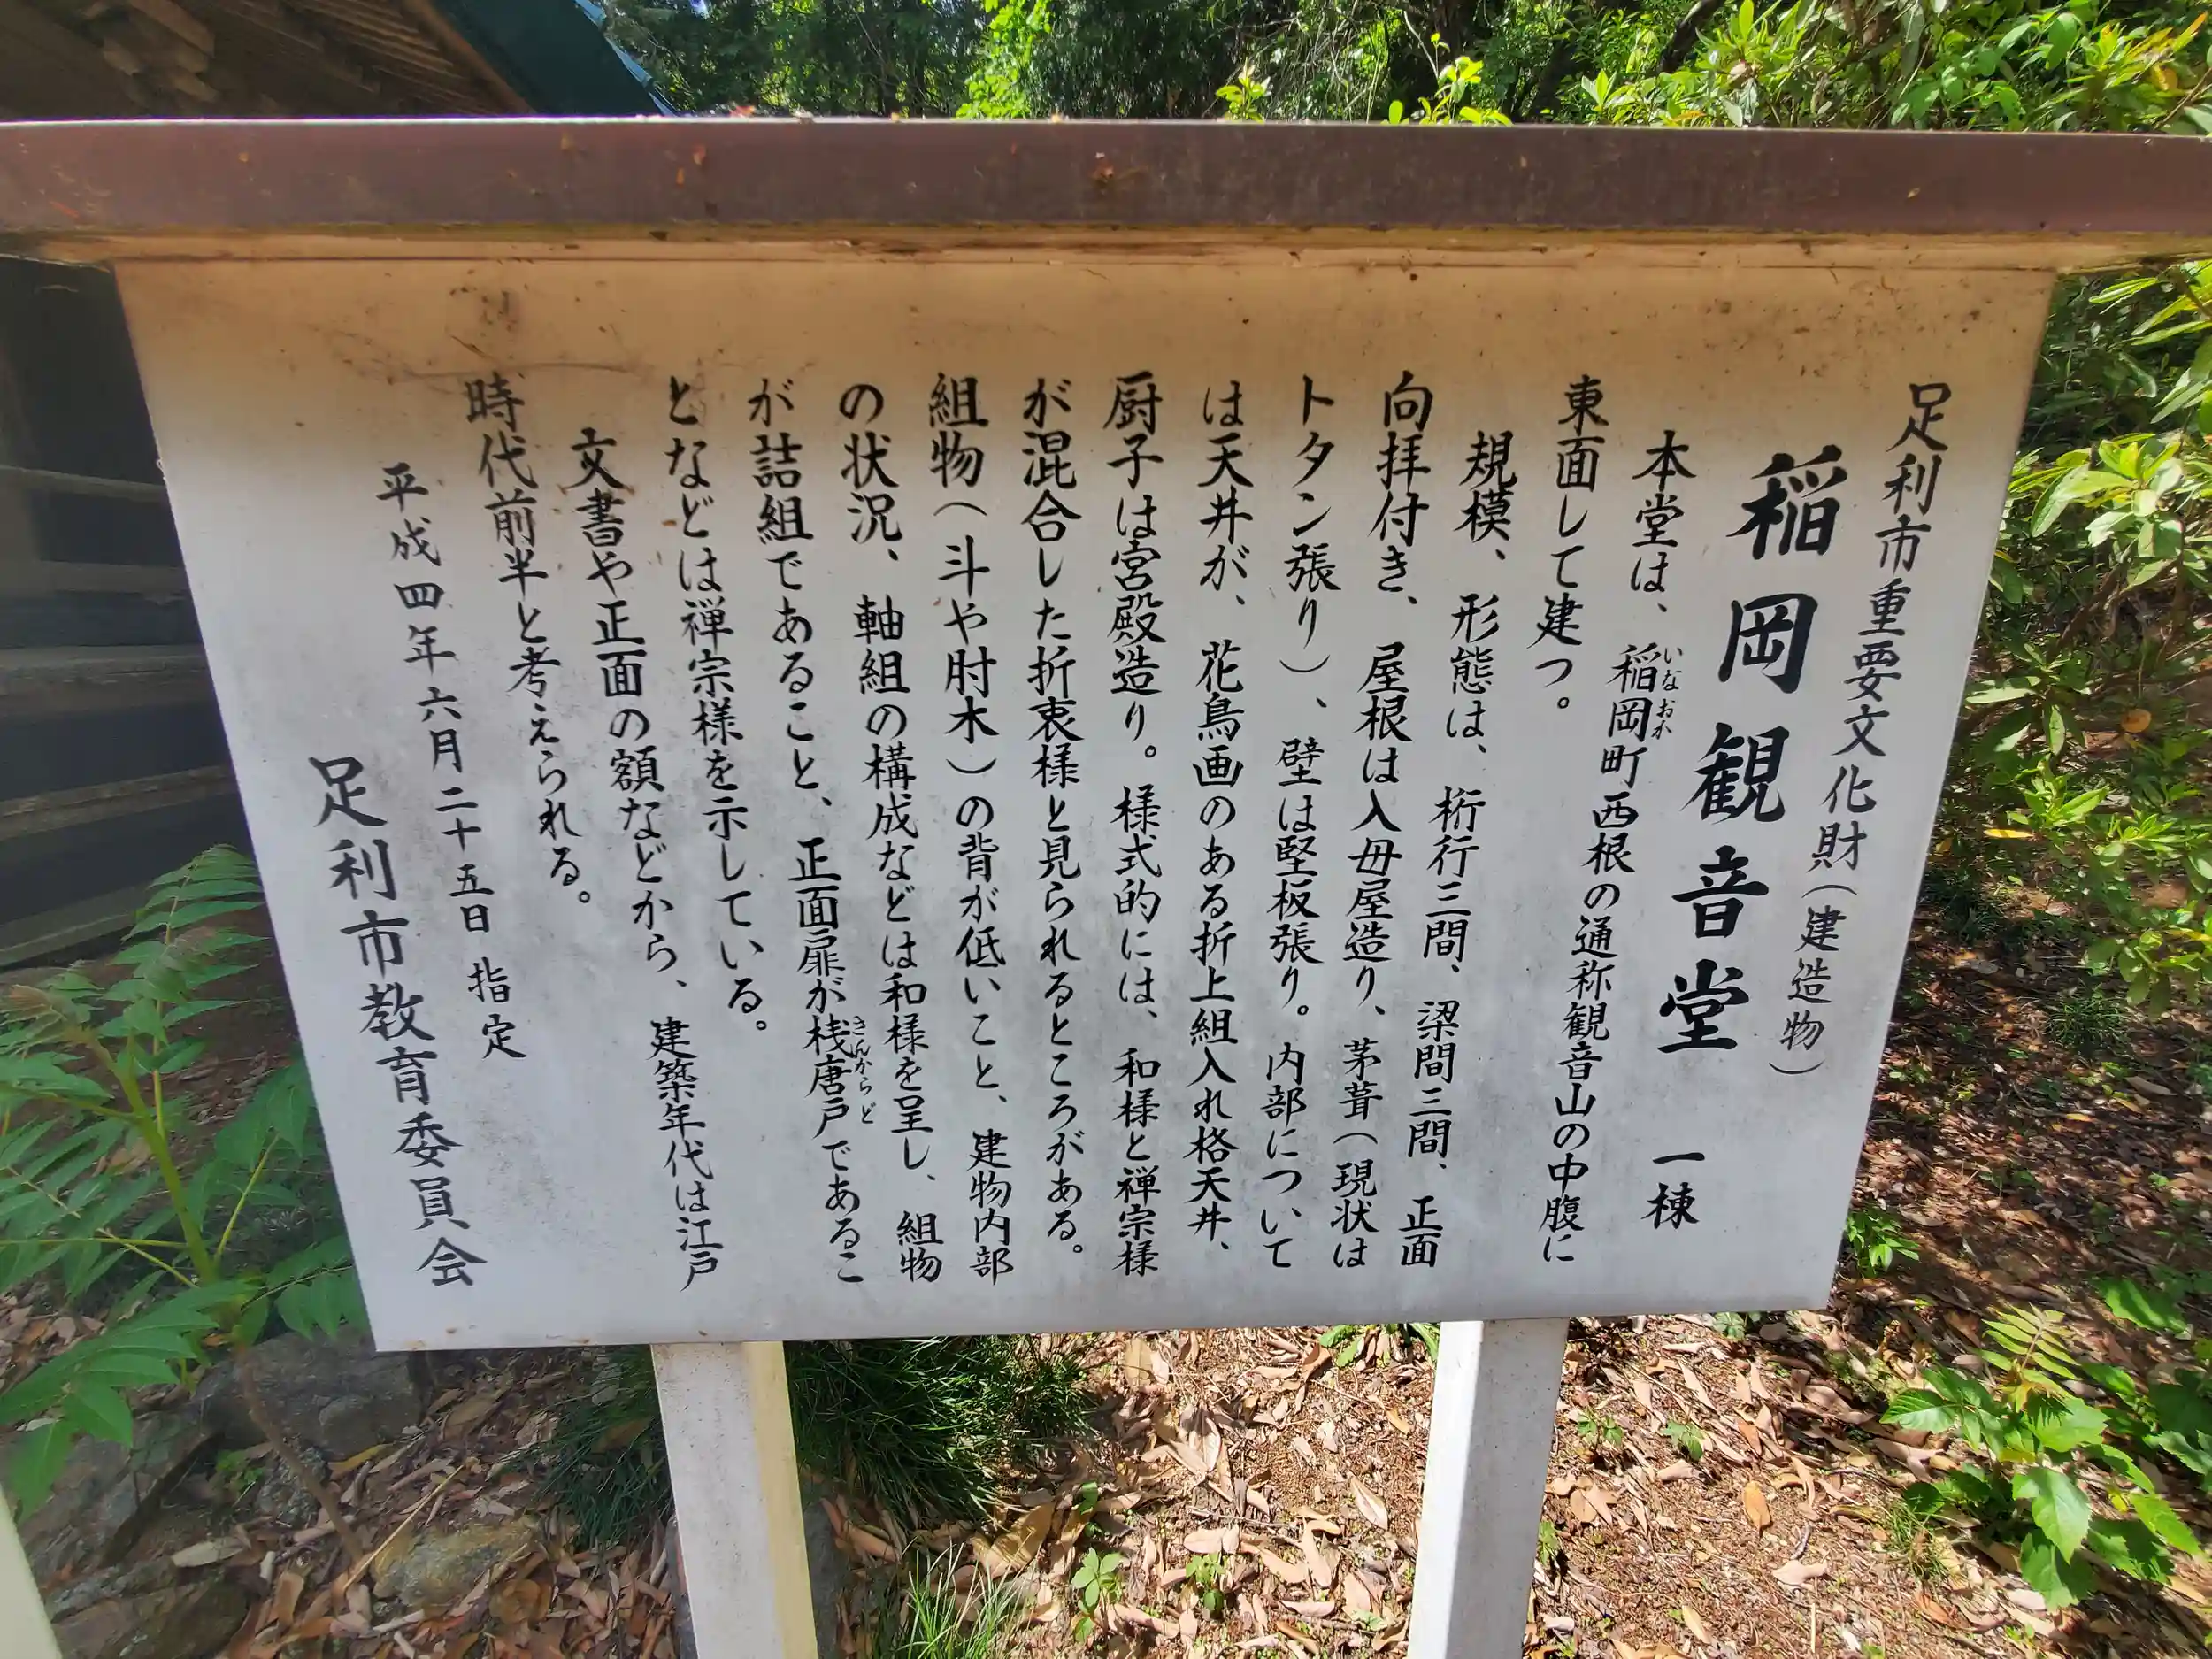 足利市重要文化財(建造物)
稲岡観音堂 一棟
本堂は、稲岡町西根の通称観音山の中腹に
いなおか
東面して建つ。
規模、形態は、桁行三間、梁間三間、正面
向拝付き、屋根は入母屋造り、茅葺(現状は
トタン張り)、壁は堅板張り。内部について
は天井が、花鳥画のある折上組入れ格天井、
厨子は宮殿造り。様式的には、和様と禅宗様
が混合した折衷様と見られるところがある。
組物(斗や肘木)の背が低いこと、建物内部
の状況、軸組の構成などは和様を呈し、組物
が詰組であること、正面扉が桟唐戸であるこ
さんからど
となどは禅宗様を示している。
文書や正面の額などから、建築年代は江戸
時代前半と考えられる。
平成四年六月二十五日 指定
足利市教育委員会